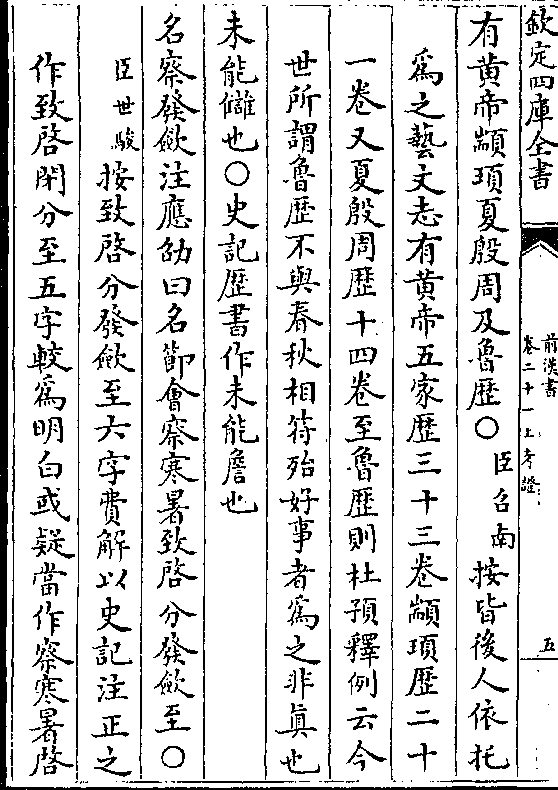 欽定四庫全書
前漢書
卷二十一上考證
五
有黄帝顓頊夏殷周及魯歴○臣召南按皆後人依托
為之藝文志有黄帝五家歴三十三卷顓頊歴二十
一卷又夏殷周歴十四卷至魯歴則杜預釋例云今
世所謂魯歴不與春秋相符殆好事者為之非真也
未能讎也○史記歴書作未能詹也
名察發斂注應劭曰名節會察寒暑致啓分發斂至○
臣世駿按致啓分發斂至六字費解以史記注正之
作致啓閉分至五字較為明白或疑當作察寒暑啓